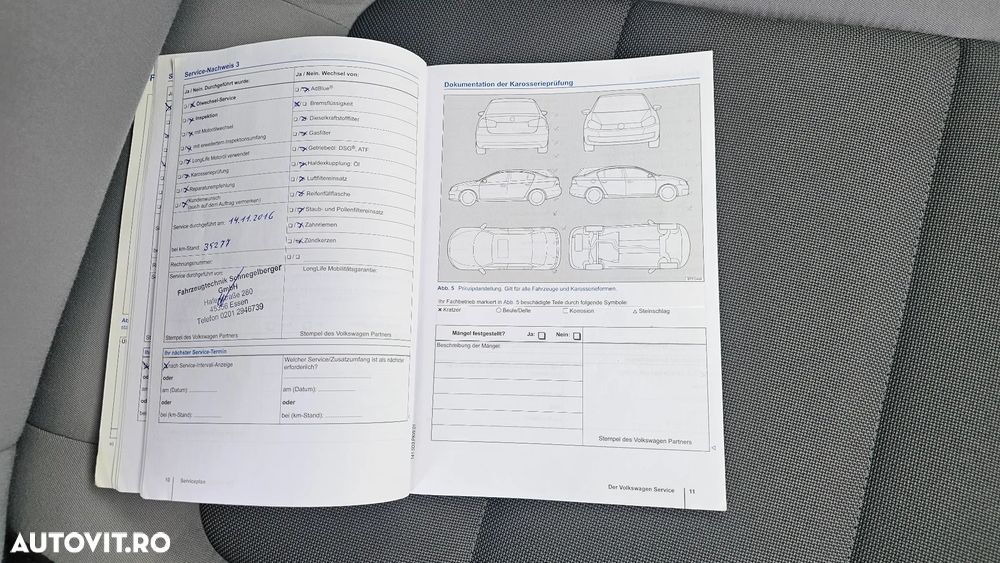 Service-Nachweis 3
Ja / Nein. Durchgeführt wurde:
Ölwechsel-Service
Inspektion
mit Motorölwechsel
mit erweitertem Inspektionsumfang
LongLife Motoröl verwendet
Karosserieprüfung
Reparaturempfehlung
Kundenwunsch
(auch auf dem Auftrag vermerken)
Service durchgeführt am: 14.11.2016
bei km-Stand: 35277
Rechnungsnummer:
Service durchgeführt von:
Fahrzeugtechnik Schnegelberger
GmbH
Hafenstraße 280
45356 Essen
Telefon 0201 2946739
Stempel des Volkswagen Partners
Ja / Nein. Wechsel von:
AdBlue®
Bremsflüssigkeit
Dieselkraftstofffilter
Gasfilter
Getriebeöl: DSG®, ATF
Haldexkupplung: Öl
Luftfiltereinsatz
Reifenfüllflasche
Staub- und Pollenfiltereinsatz
Zahnriemen
Zündkerzen
LongLife Mobilitätsgarantie:
Stempel des Volkswagen Partners
Ihr nächster Service-Termin
nach Service-Intervall-Anzeige
oder
am (Datum):
oder
bei (km-Stand):
Welcher Service/Zusatzumfang ist als nächster
erforderlich?
am (Datum):
oder
bei (km-Stand):
10 Serviceplan
Dokumentation der Karosserieprüfung
Abb. 5 Prinzipdarstellung. Gilt für alle Fahrzeuge und Karosserieformen.
Ihr Fachbetrieb markiert in Abb. 5 beschädigte Teile durch folgende Symbole:
× Kratzer ○ Beule/Delle □ Korrosion △ Steinschlag
Mängel festgestellt? Ja: Nein:
Beschreibung der Mängel:
Stempel des Volkswagen Partners
Der Volkswagen Service 11
AUTOVIT.RO